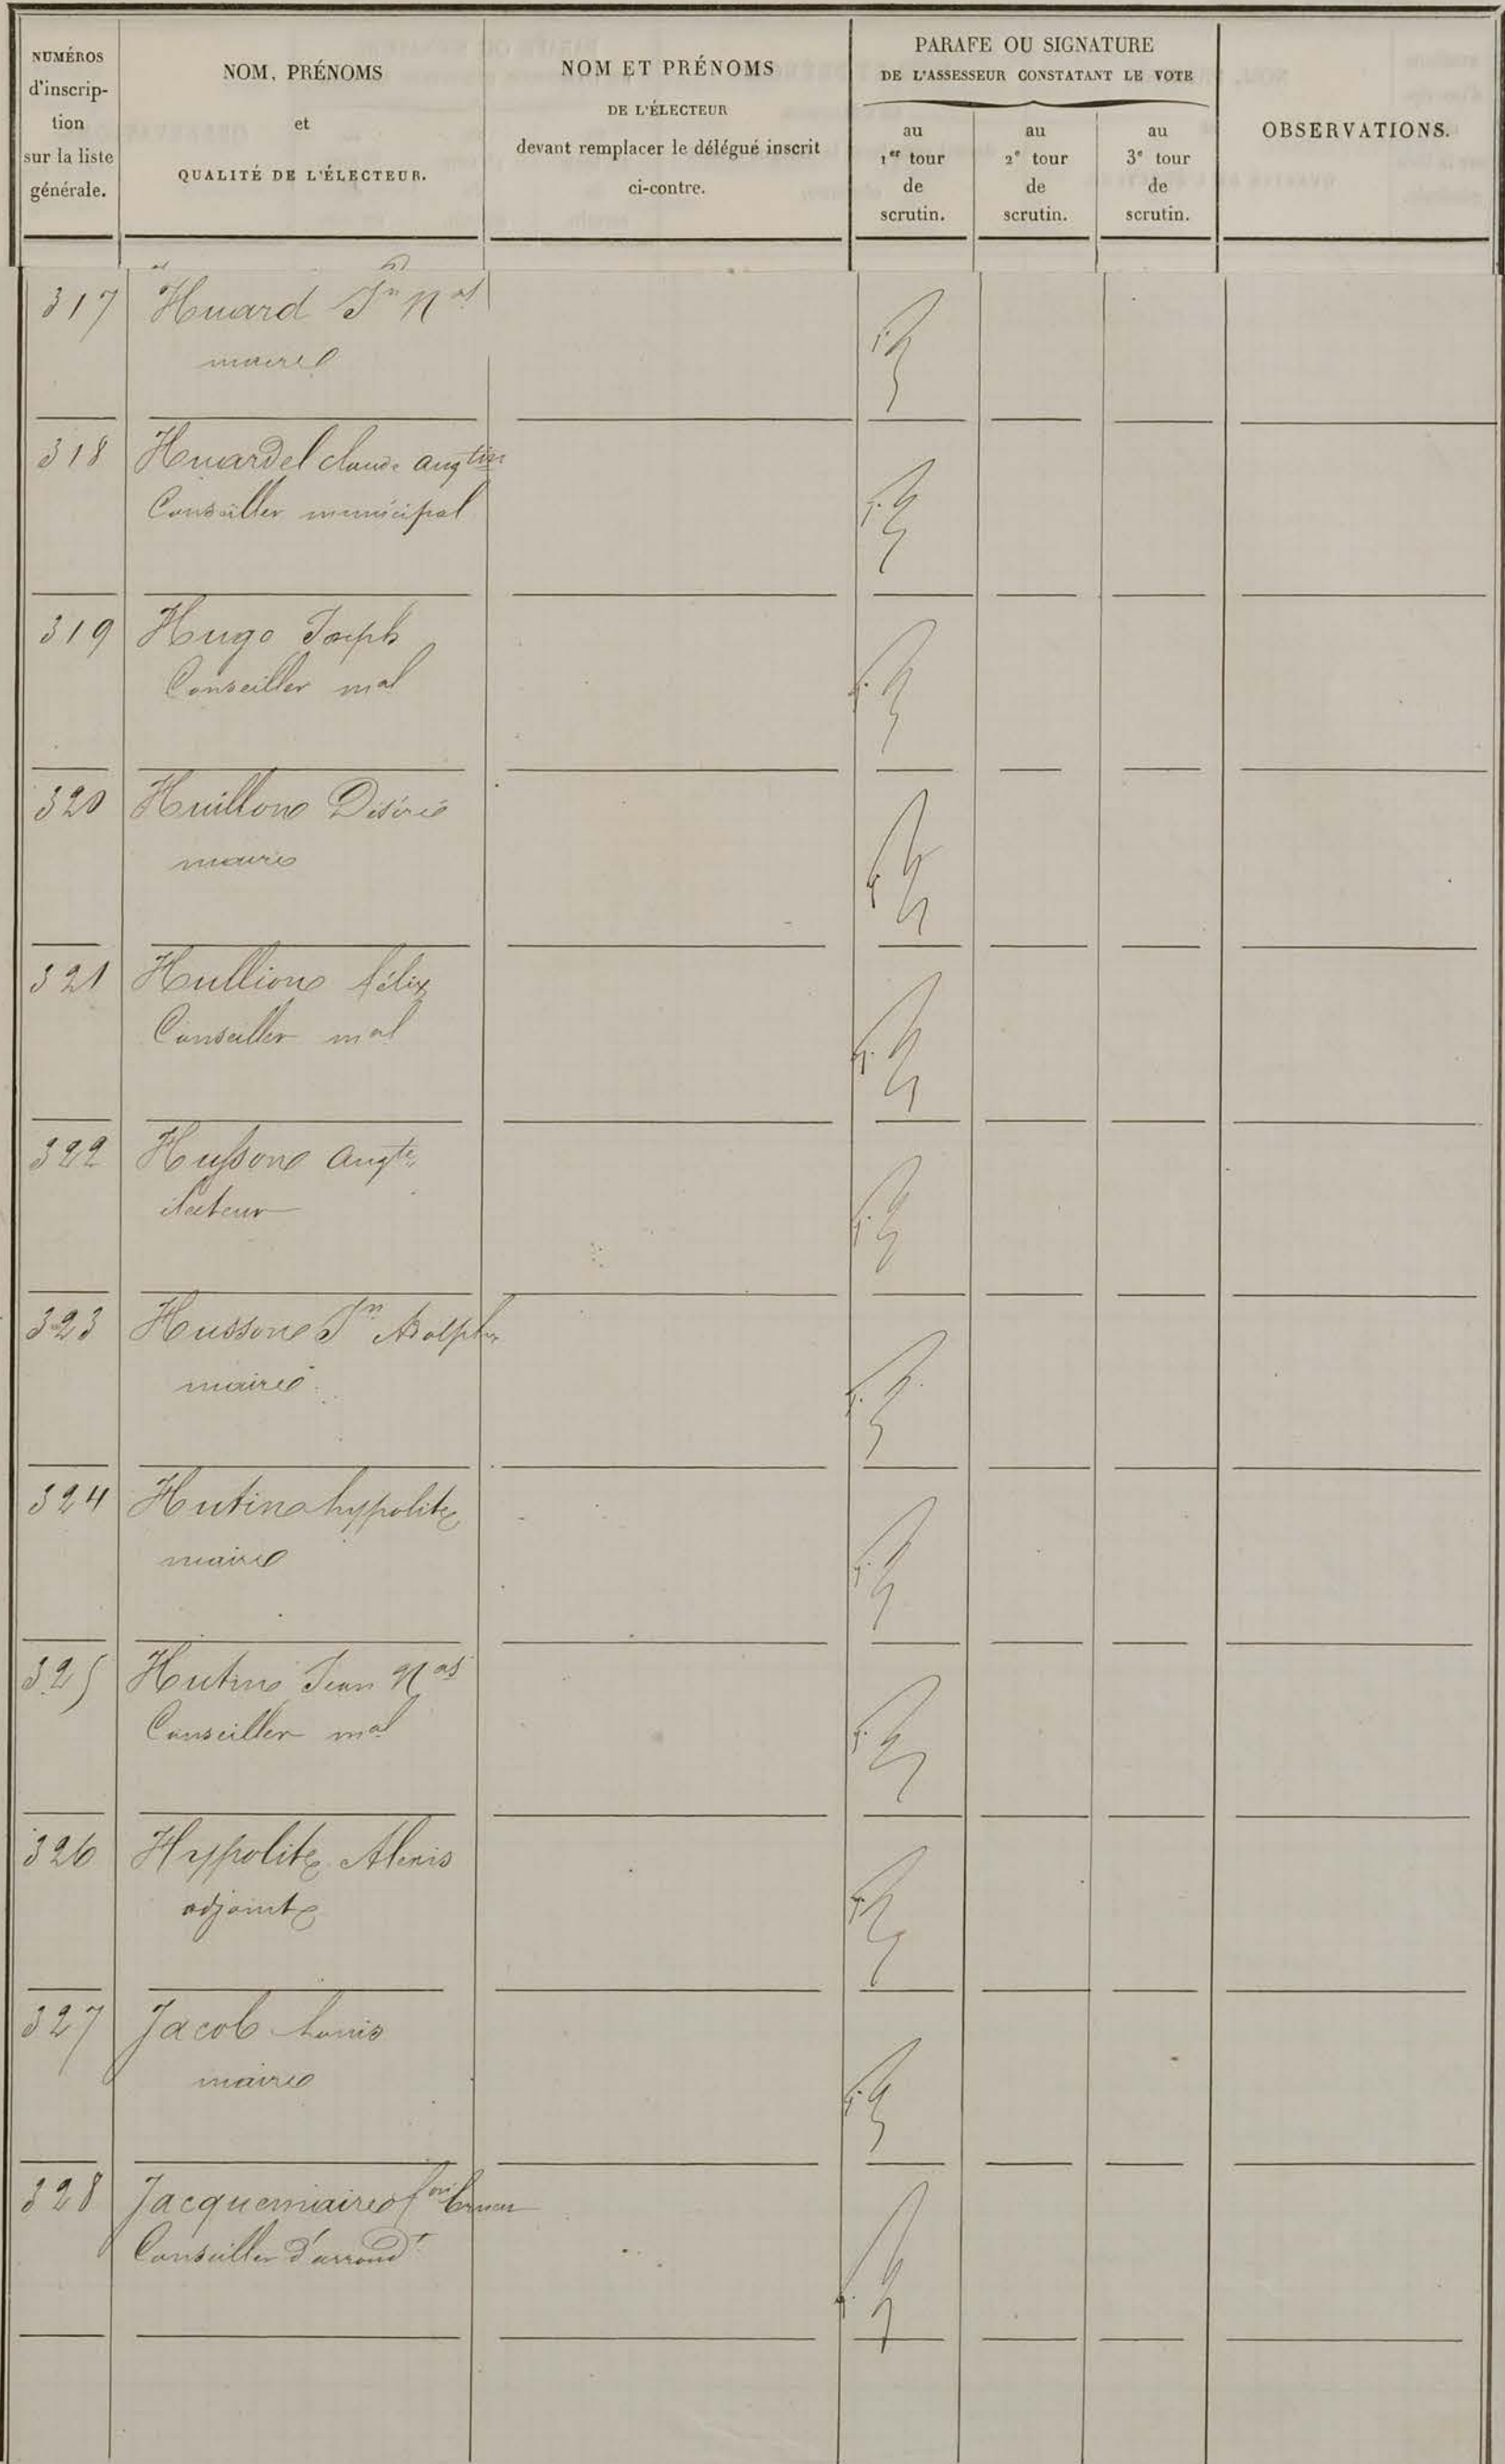 NUMÉROS
d'inscrip-
tion
sur la liste
générale.
NOM, PRÉNOMS
et
QUALITÉ DE L'ÉLECTEUR.
NOM ET PRÉNOMS
DE L'ÉLECTEUR
devant remplacer le délégué inscrit
ci-contre.
PARAFE OU SIGNATURE
DE L'ASSESSEUR CONSTATANT LE VOTE
au
1er tour
de
scrutin.
au
2e tour
de
scrutin.
au
3e tour
de
scrutin.
OBSERVATIONS.
317 Huard Jn Nas
maire
318 Huardel claude augtin
Conseiller municipal
319 Hugo Joseph
Conseiller mal
320 Huillon Désiré
maire
321 Hullion félix
Conseiller mal
322 Husson augte
électeur
323 Husson Jn Adolphe
maire
324 Hutin hypolite
maire
325 Hutin Jean Nas
Conseiller mal
326 Hypolite Alexis
adjoint
327 Jacob Louis
maire
328 Jacquemaire
Conseiller d'arrondt